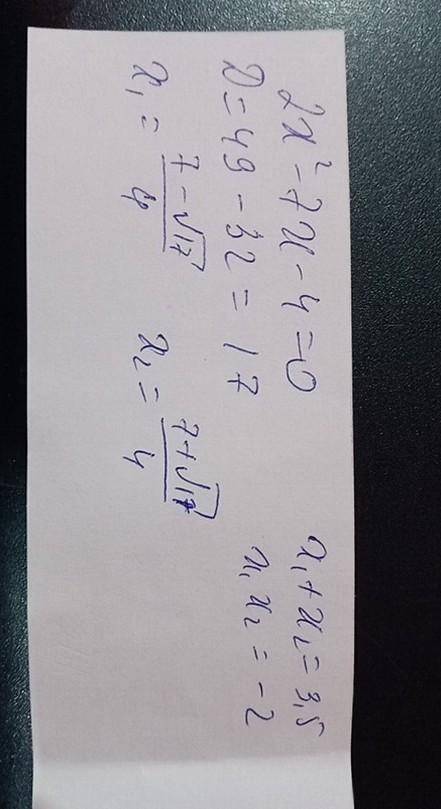 2x² - 7x - 4 = 0
D = 49 - 32 = 17
x₁ = (7 - √17)/4    x₂ = (7 + √17)/4
x₁ + x₂ = 3,5
x₁ x₂ = -2